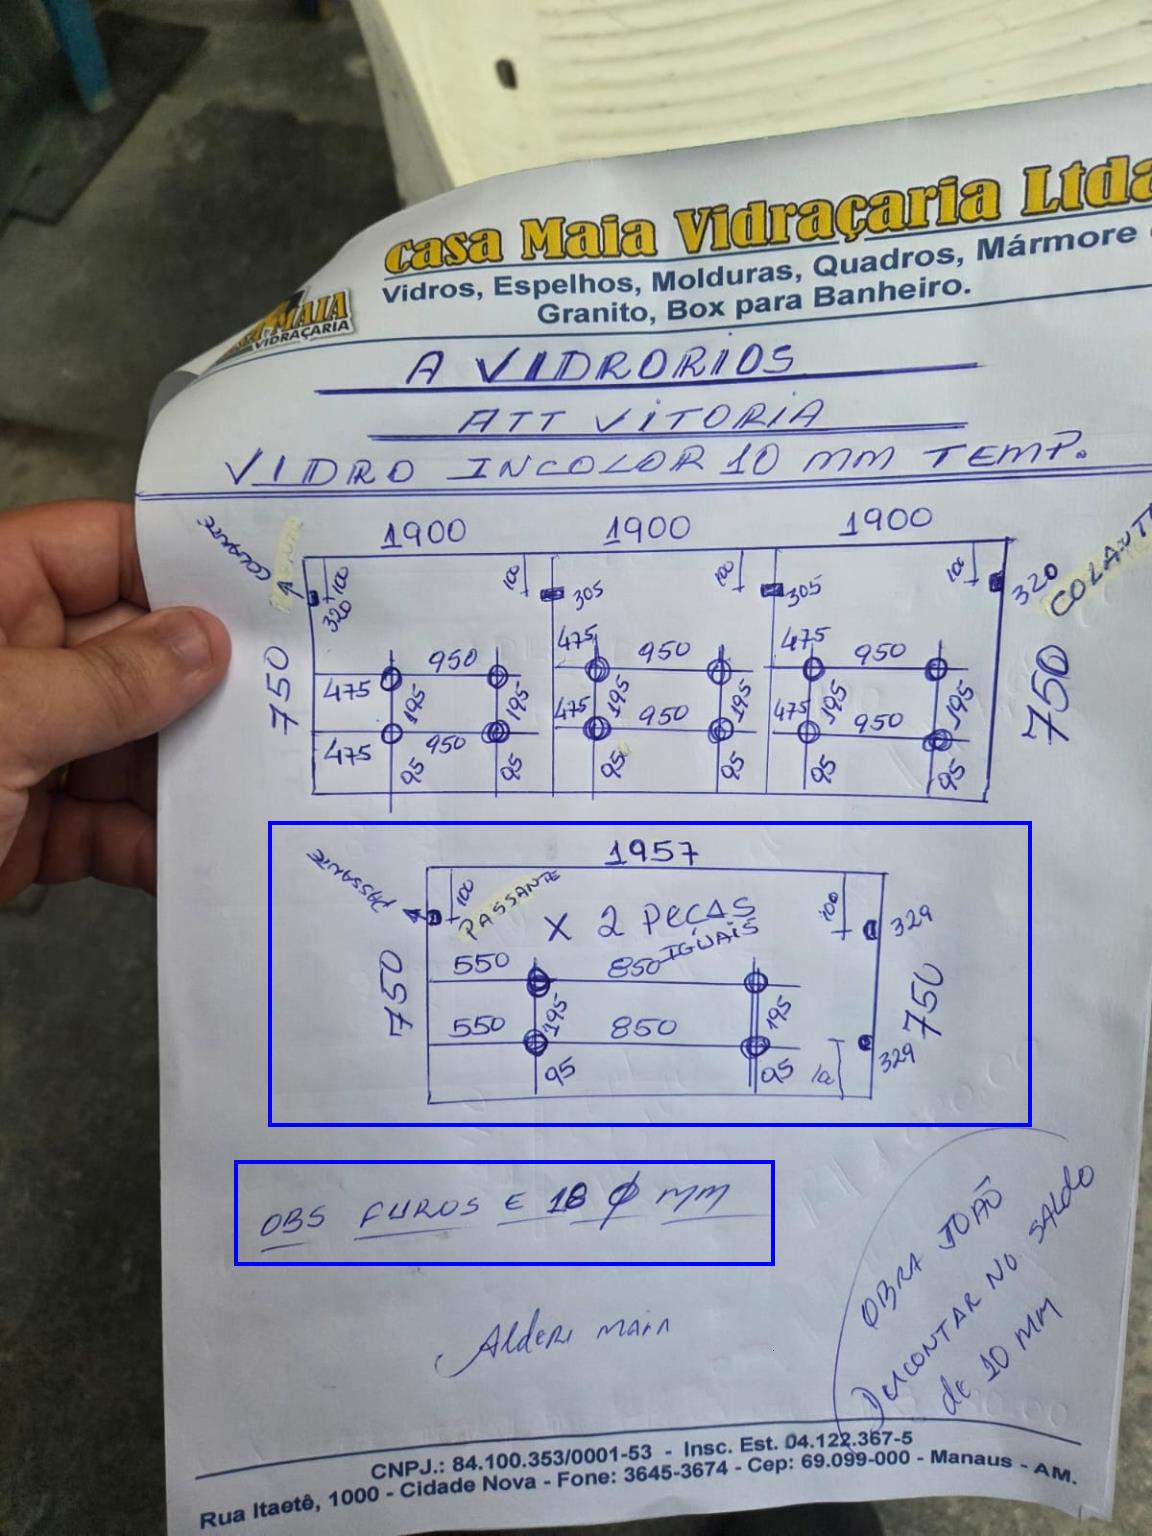 Casa Maia Vidraçaria Ltda
Vidros, Espelhos, Molduras, Quadros, Mármore
Granito, Box para Banheiro.
MAIA
VIDRAÇARIA
A VIDRORIOS
ATT VITORIA
VIDRO INCOLOR 10 MM TEMP.
1900 1900 1900
COLANTE 100 100 100 100
320 305 305 320 COLANTE
750 750
475 475
950 950 950
475 195 195 195 195 195 195
475 475
475 950 950 950
95 95 95 95 95 95
1957
PASSANTE 100 PASSANTE 100 329
X 2 PEÇAS
IGUAIS
750 550 850 750
195 195
550 850
329
95 95
OBS FUROS E 18 Ø MM
Alderi Maia
OBRA JOÃO
Descontar no saldo
de 10 mm
CNPJ.: 84.100.353/0001-53 - Insc. Est. 04.122.367-5
Rua Itaetê, 1000 - Cidade Nova - Fone: 3645-3674 - Cep: 69.099-000 - Manaus - AM.